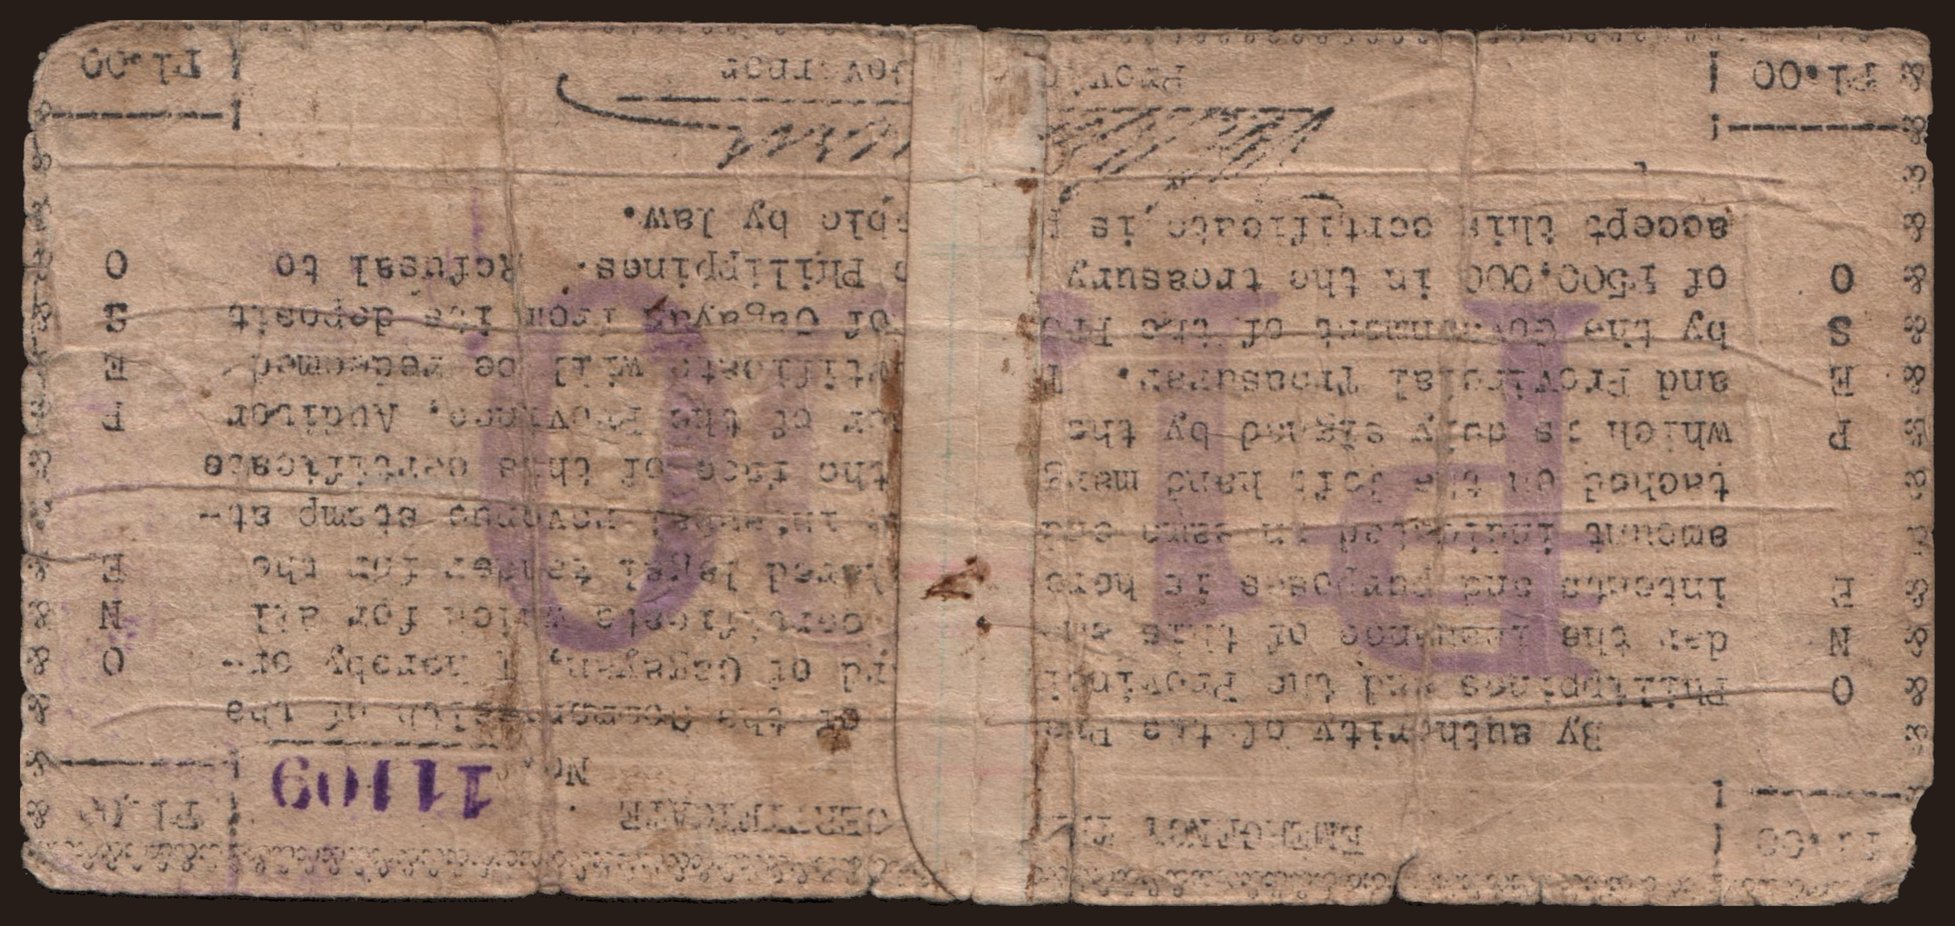 P1.00 EMERGENCY CERTIFICATE P1.00
No. 11109
By authority of the Pre of the Commonwealth of the
Philippines and the Provinci rd of Cagayan, I hereby or-
der the issuance of this em- certificate which for all
intents and purposes is here lared legal tender for the
amount indicated in same and internal revenue stamp at-
tached on the left hand marg the face of this certificate
which is duly signed by the or of the Province, Auditor
and Provincial Treasurer. rtificate will be redeemed
by the Government of the Pro of Cagayan from its deposit
of ₱500,000 in the treasury Philippines. Refusal to
accept this certificate is p ble by law.
ONE PESO
ONE PESO
P1.00 Provin Governor P1.00